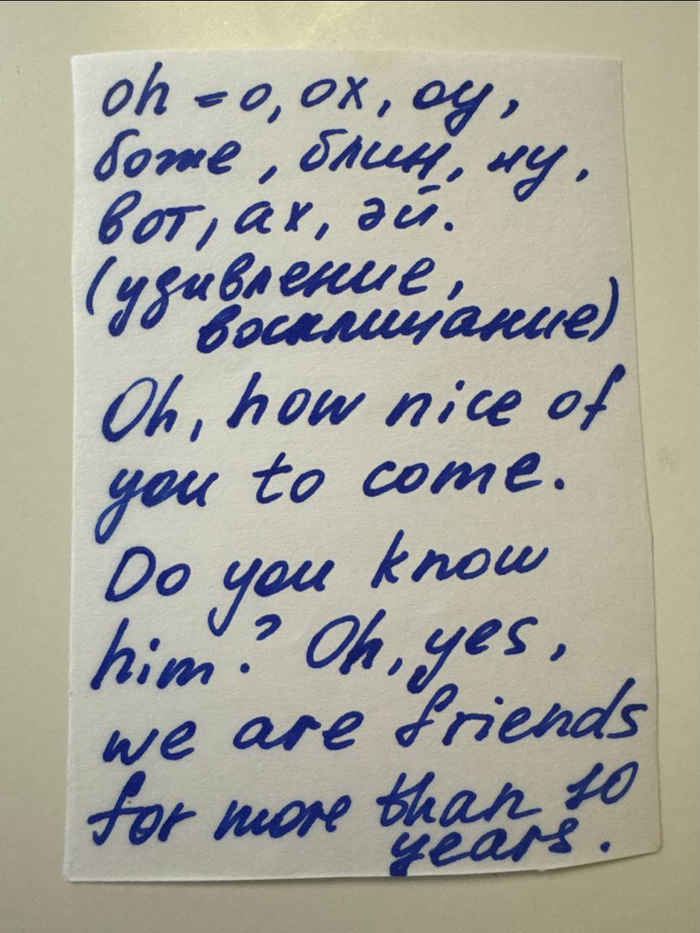 oh = о, ох, оу,
боже, блин, ну,
вот, ах, эй.
(удивление,
восклицание)
Oh, how nice of
you to come.
Do you know
him? Oh, yes,
we are friends
for more than 10
years.